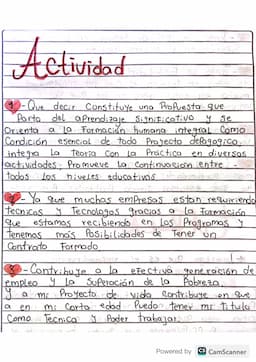 Actividad
1 - Que decir Constituye una Propuesta que
Parta del aprendizaje Significativo y se
Orienta a La Formación humana integral Como
Condición esencial de todo Proyecto pedagogico.
integra La Teoria Con La Practica en diversas
actividades, Promueve La Continuacion entre -
todos Los niveles educativos.
2 - Ya que muchas empresas estan requiriendo
Tecnicos y Tecnologos gracias a La Formación
que estamos recibiendo en Los Programas y
Tenemos mas Posibilidades de Tener un
Contrato Formado.
3 - Contribuye a la efectiva generación de
empleo y La Superación de La Pobreza.
Y a mi Proyecto de vida Contribuye en que
a en mi Corta edad Puedo tener mi Titulo
Como Tecnica y Poder trabajar.
Powered by CS CamScanner